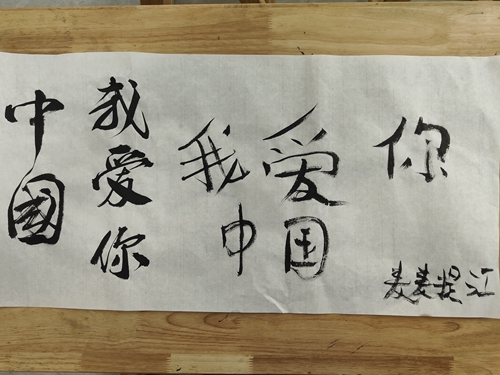 我爱你
中國
我爱你
中国
麦麦提江